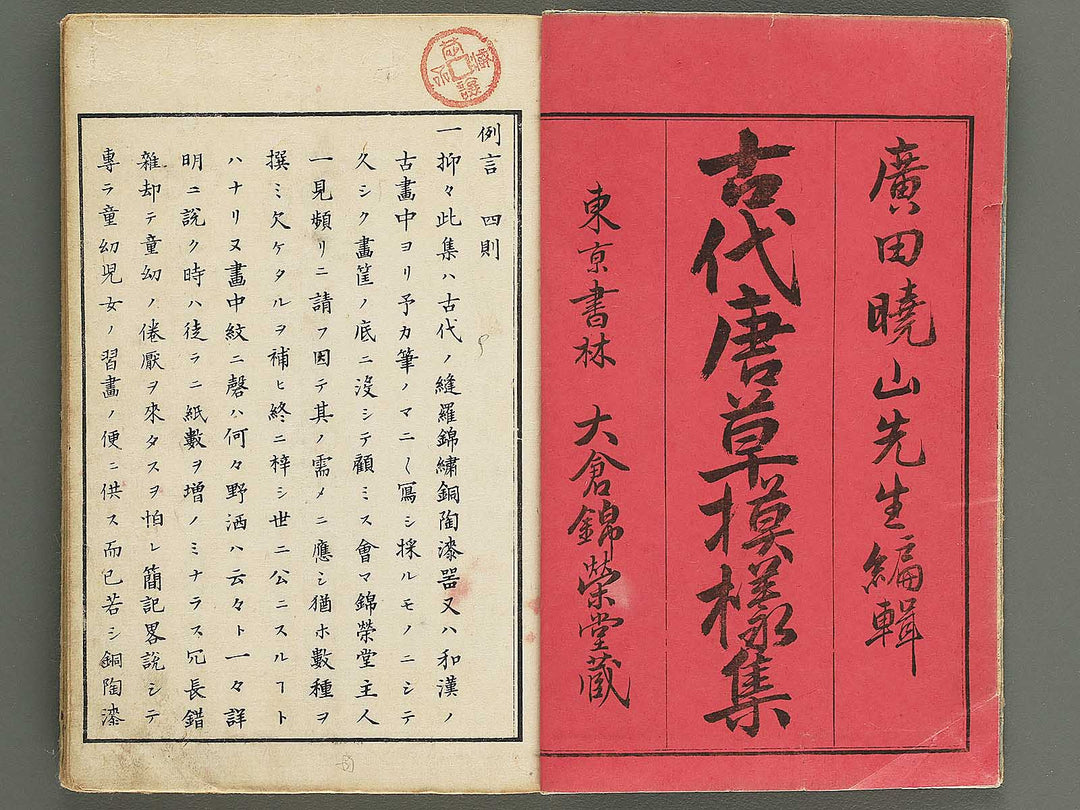 廣田曉山先生編輯
古代唐草模樣集
東京書林 大倉錦榮堂蔵
例言 四則
一抑々此集ハ古代ノ縫羅錦繡銅陶漆器又ハ和漢ノ
古畫中ヨリ予カ筆ノマニ〱寫シ採ルモノニシテ
久シク畫筐ノ底ニ沒シテ顧ミス會マ錦榮堂主人
一見頻リニ請フ因テ其ノ需メニ應シ猶ホ數種ヲ
撰ミ欠ケタルヲ補ヒ終ニ梓シ世ニ公ニスルヿト
ハナリヌ畫中紋ニ磬ハ何々野酒ハ云々ト一々詳
明ニ說ク時ハ徒ラニ紙數ヲ增ノミナラス冗長錯
雜却テ童幼ノ倦厭ヲ來タスヲ怕レ簡記畧說シテ
專ラ童幼児女ノ習畫ノ便ニ供ス而已若シ銅陶漆